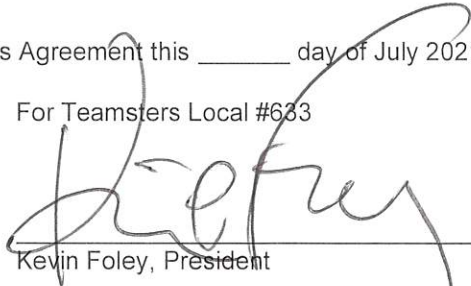 s Agreement this ______ day of July 202
For Teamsters Local #633
Kevin Foley, President